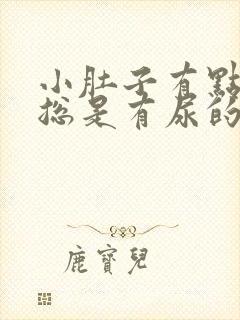 小肚子有點
總是有尿的
鹿寶兒